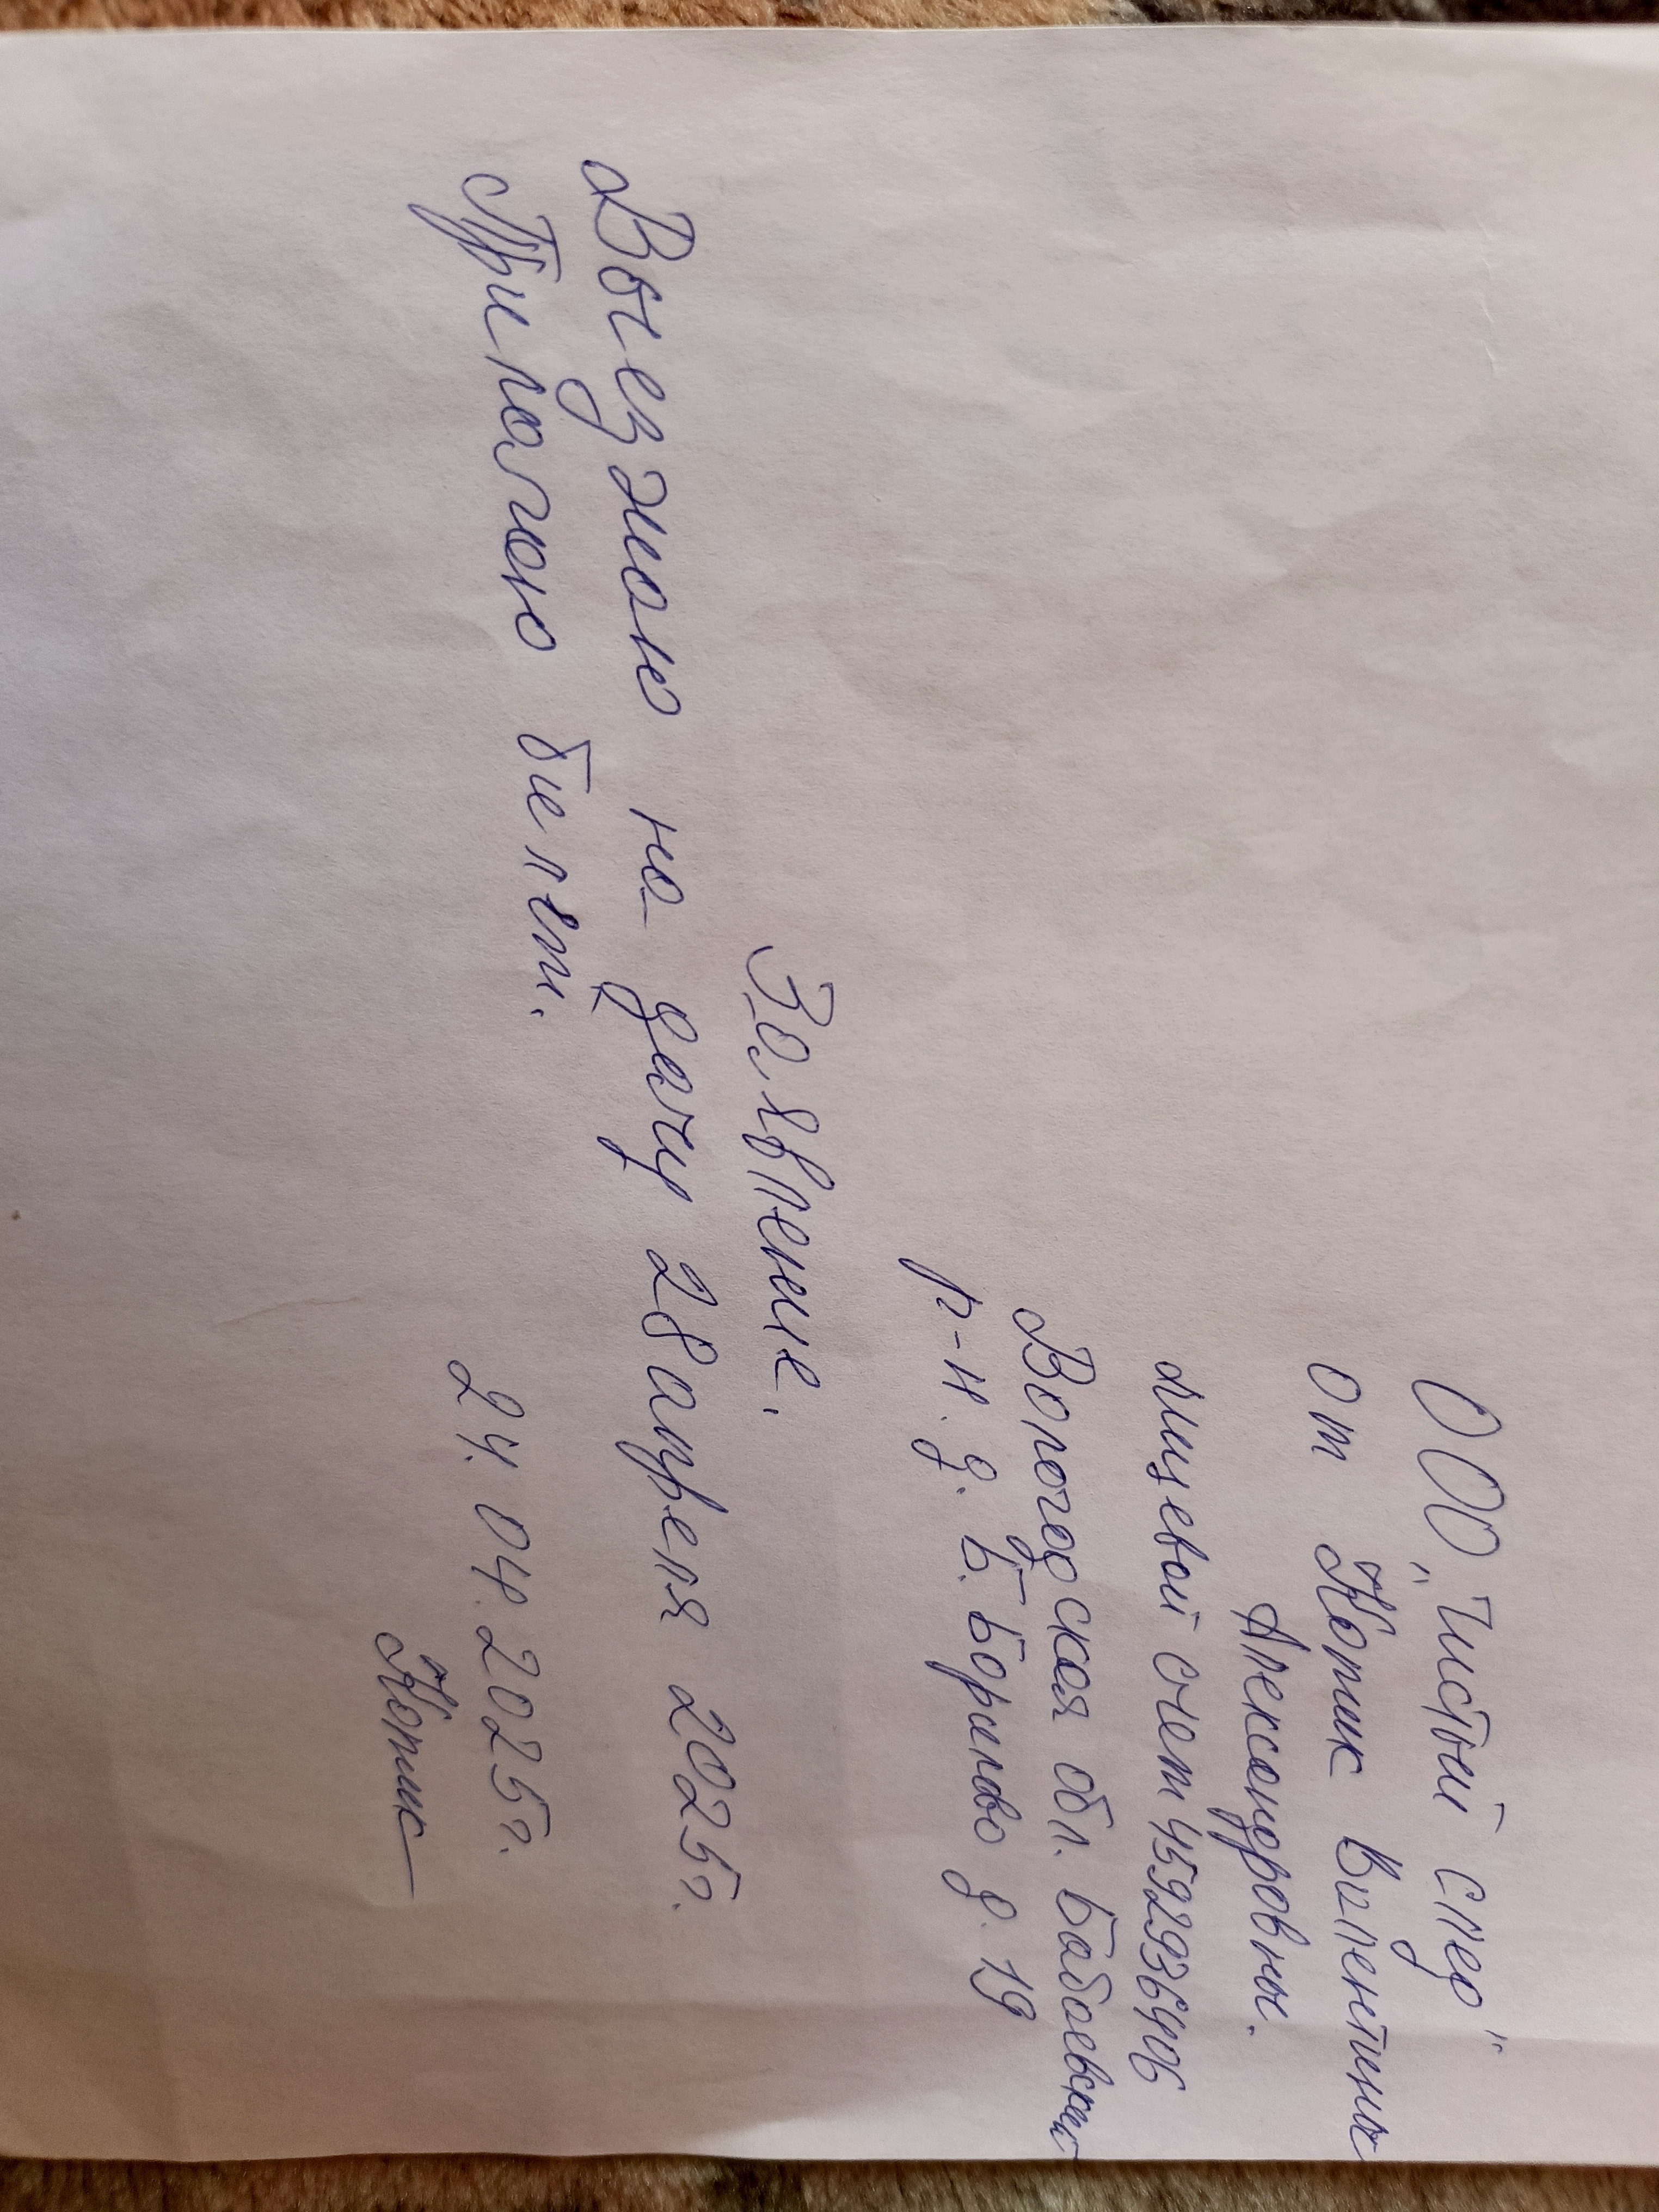 ООО „Чистый след"
от Копик Валентины
Александровны.
лицевой счет 4592936406
Вологодская обл. Бабаевский
р-н. д. Б. Борисово д. 19
Заявление.
Выезжаю на дачу 28 апреля 2025г.
Прилагаю билет.
24. 04. 2025г.
Копик